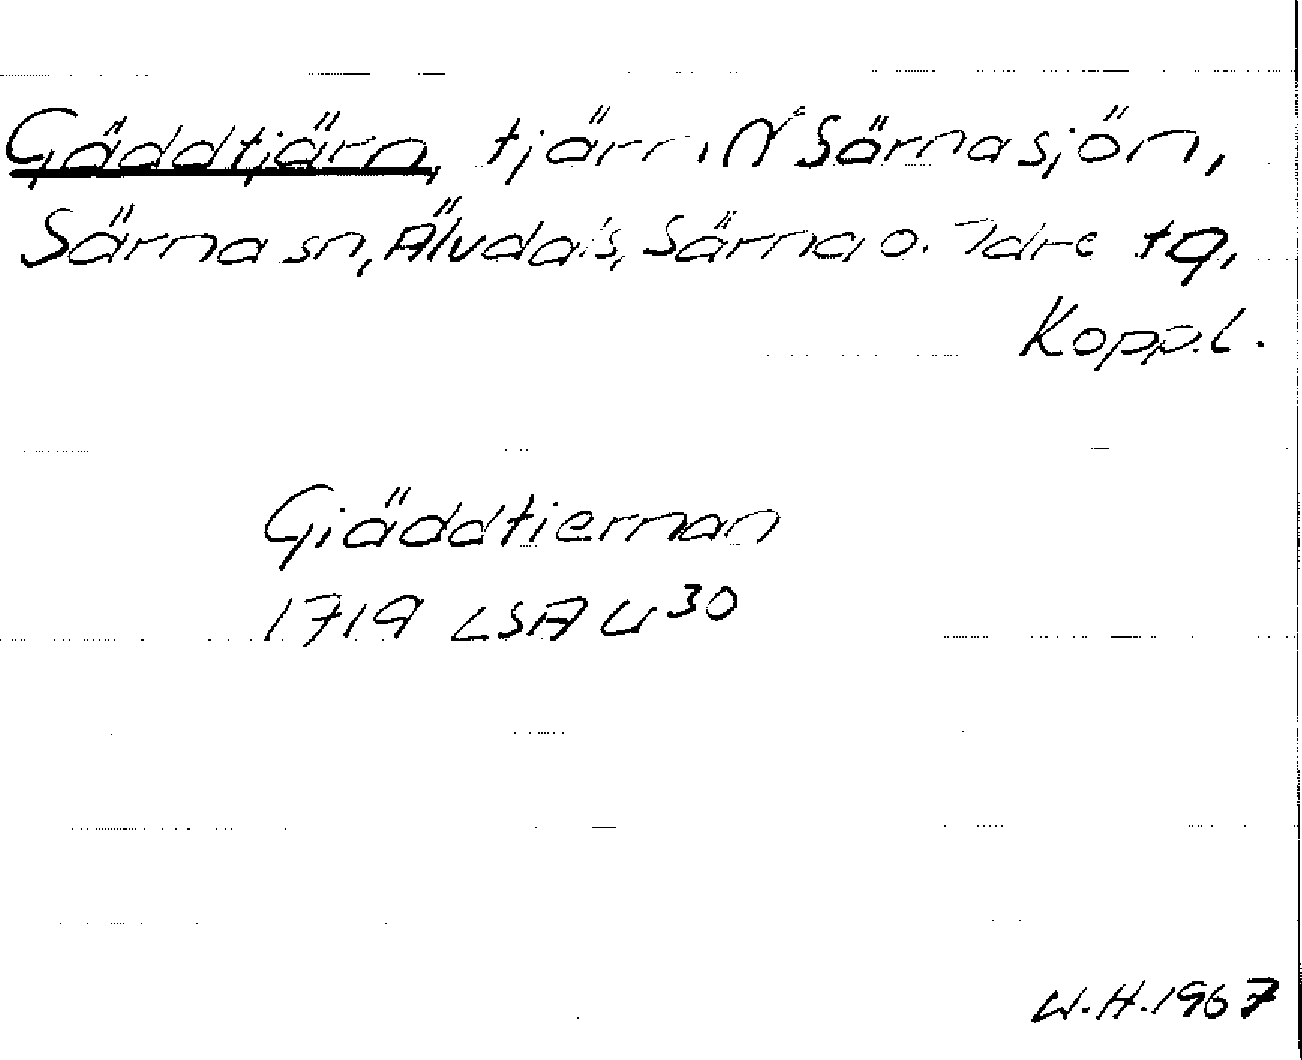 Gäddtjärn, tjärn i N Särnasjön,
Särna sn, Älvdals, Särna o. Idre tg,
Kopp.l.
Giäddtiernan
1719 LSA U³⁰
W.H. 1967